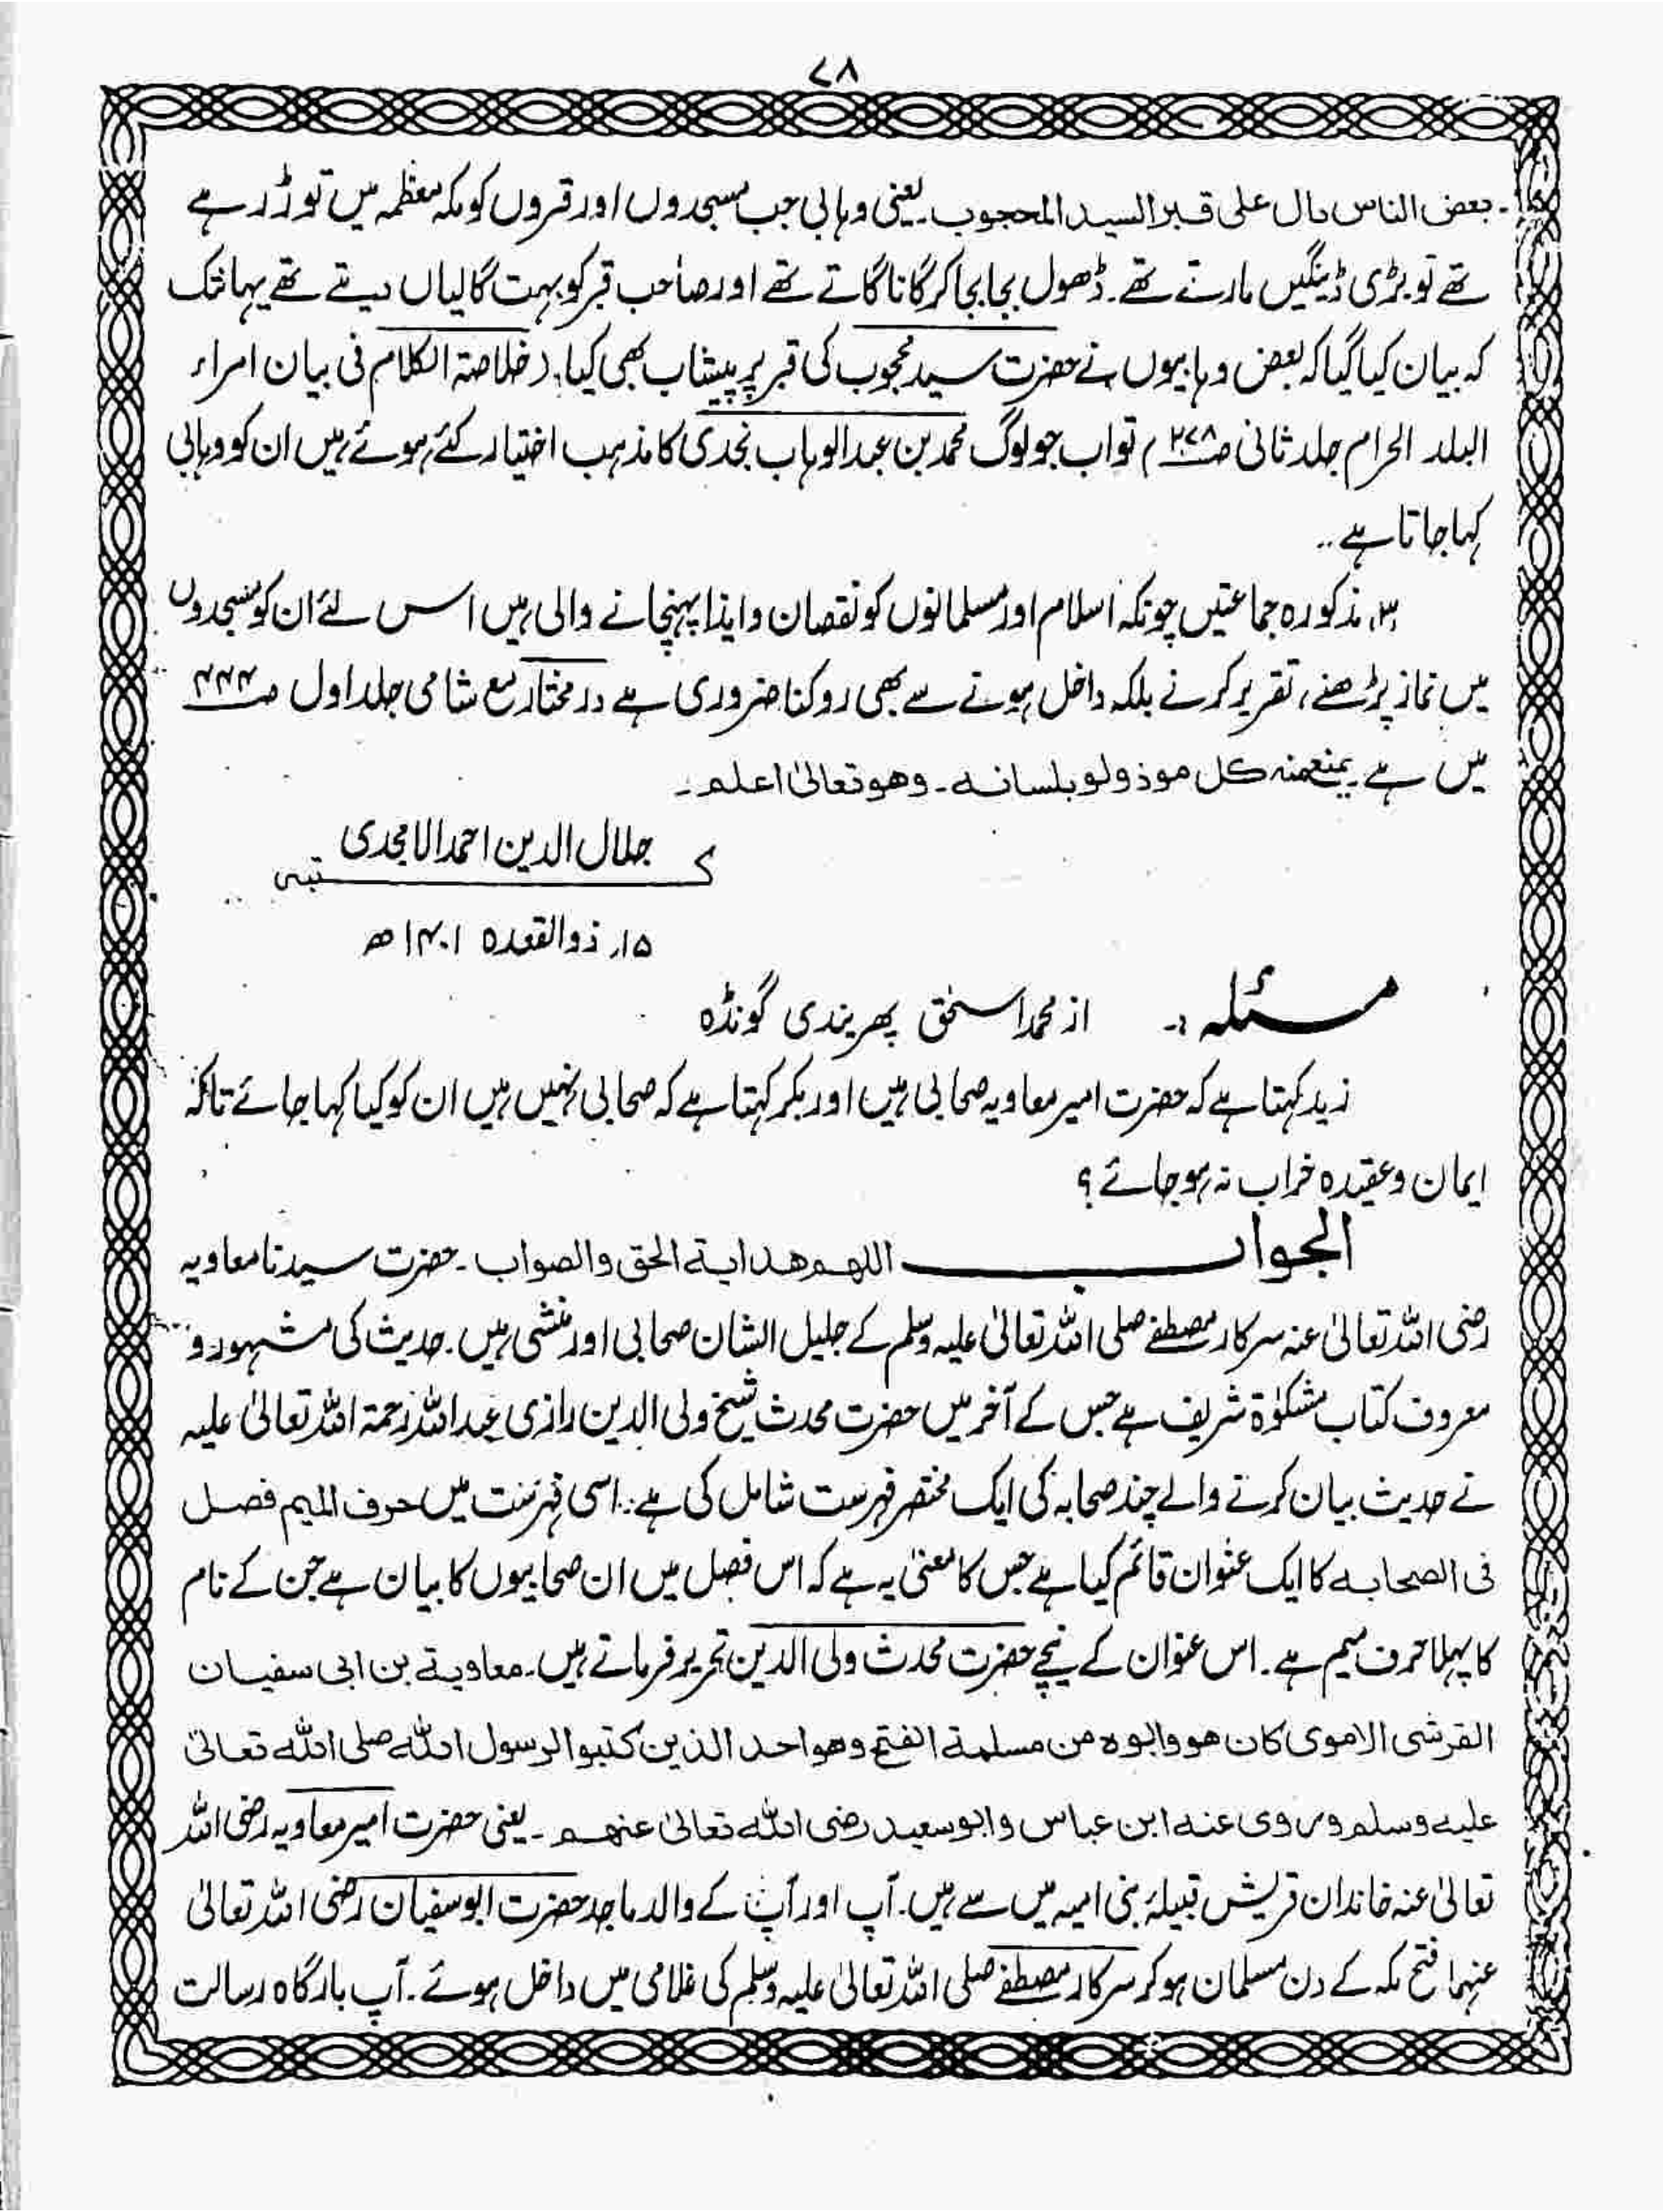 ۷۸
بعض الناس بال علی قبر السید المحجوب۔ یعنی وہابی جب مسجدوں اور قبروں کو مکہ معظمہ میں توڑ رہے
تھے تو بڑی ڈینگیں مارتے تھے۔ ڈھول بجا بجا کر گانا گاتے تھے اور صاحب قبر کو بہت گالیاں دیتے تھے یہانتک
کہ بیان کیا گیا کہ بعض وہابیوں نے حضرت سید محجوب کی قبر پر پیشاب بھی کیا۔ (خلاصۃ الکلام فی بیان امراء
البلد الحرام جلد ثانی ص۲۷۸) تو اب جو لوگ محمد بن عبدالوہاب نجدی کا مذہب اختیار کئے ہوئے ہیں ان کو وہابی
کہا جاتا ہے۔۔
۳، مذکورہ جماعتیں چونکہ اسلام اور مسلمانوں کو نقصان و ایذا پہنچانے والی ہیں اس لئے ان کو مسجدوں
میں نماز پڑھنے، تقریر کرنے بلکہ داخل ہونے سے بھی روکنا ضروری ہے درمختار مع شامی جلد اول ص۴۴۴
میں ہے یمنع منہ کل موذ ولو بلسانہ۔ وھو تعالیٰ اعلم۔
کتبہ جلال الدین احمد الامجدی
۱۵؍ ذوالقعدہ ۱۴۰۱ھ
مسئلہ:۔ از محمد اسحٰق پھریندی گونڈہ
زید کہتا ہے کہ حضرت امیر معاویہ صحابی ہیں اور بکر کہتا ہے کہ صحابی نہیں ہیں ان کو کیا کہا جائے تاکہ
ایمان و عقیدہ خراب نہ ہو جائے؟
الجواب اللھم ھدایۃ الحق والصواب۔ حضرت سیدنا معاویہ
رضی اللہ تعالیٰ عنہ سرکار مصطفےٰ صلی اللہ تعالیٰ علیہ وسلم کے جلیل الشان صحابی اور منشی ہیں۔ حدیث کی مشہور و
معروف کتاب مشکوٰۃ شریف ہے جس کے آخر میں حضرت محدث شیخ ولی الدین رازی عبداللہ رحمۃ اللہ تعالیٰ علیہ
نے حدیث بیان کرنے والے چند صحابہ کی ایک مختصر فہرست شامل کی ہے۔ اسی فہرست میں حرف المیم فصل
فی الصحابہ کا ایک عنوان قائم کیا ہے جس کا معنیٰ یہ ہے کہ اس فصل میں ان صحابیوں کا بیان ہے جن کے نام
کا پہلا حرف میم ہے۔ اس عنوان کے نیچے حضرت محدث ولی الدین تحریر فرماتے ہیں۔ معاویۃ بن ابی سفیان
القرشی الاموی کان ھو وابوہ من مسلمۃ الفتح وھو احد الذین کتبوا لرسول اللہ صلی اللہ تعالیٰ
علیہ وسلم وروی عنہ ابن عباس وابو سعید رضی اللہ تعالیٰ عنھم۔ یعنی حضرت امیر معاویہ رضی اللہ
تعالیٰ عنہ خاندان قریش قبیلۂ بنی امیہ میں سے ہیں۔ آپ اور آپ کے والد ماجد حضرت ابوسفیان رضی اللہ تعالیٰ
عنہما فتح مکہ کے دن مسلمان ہو کر سرکار مصطفےٰ صلی اللہ تعالیٰ علیہ وسلم کی غلامی میں داخل ہوئے۔ آپ بارگاہ رسالت